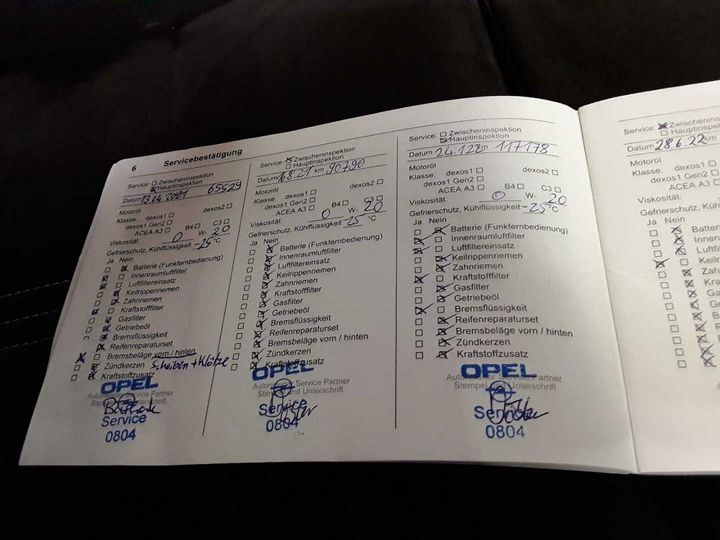 6 Servicebestätigung
Service: Zwischeninspektion
Hauptinspektion
Datum km 65529
Motoröl
Klasse: dexos1 dexos2
dexos1 Gen2
ACEA A3 B4 C3
Viskosität: 0 W- 20
Gefrierschutz, Kühlflüssigkeit -25 °C
Ja Nein
Batterie (Funkfernbedienung)
Innenraumluftfilter
Luftfiltereinsatz
Keilrippenriemen
Zahnriemen
Kraftstofffilter
Gasfilter
Getriebeöl
Bremsflüssigkeit
Reifenreparaturset
Bremsbeläge vorn / hinten
Zündkerzen Scheiben + Klötze
Kraftstoffzusatz
OPEL
Service Partner
Service
0804
Service: Zwischeninspektion
Hauptinspektion
Datum km 90790
Motoröl
Klasse: dexos1 dexos2
dexos1 Gen2
ACEA A3 B4 C3
Viskosität: 0 W- 20
Gefrierschutz, Kühlflüssigkeit -25 °C
Ja Nein
Batterie (Funkfernbedienung)
Innenraumluftfilter
Luftfiltereinsatz
Keilrippenriemen
Zahnriemen
Kraftstofffilter
Gasfilter
Getriebeöl
Bremsflüssigkeit
Reifenreparaturset
Bremsbeläge vorn / hinten
Zündkerzen
Kraftstoffzusatz
OPEL
Service Partner
Stempel und Unterschrift
Service
0804
Service: Zwischeninspektion
Hauptinspektion
Datum km 117178
Motoröl
Klasse: dexos1 dexos2
dexos1 Gen2
ACEA A3 B4 C3
Viskosität: 0 W- 20
Gefrierschutz, Kühlflüssigkeit -25 °C
Ja Nein
Batterie (Funkfernbedienung)
Innenraumluftfilter
Luftfiltereinsatz
Keilrippenriemen
Zahnriemen
Kraftstofffilter
Gasfilter
Getriebeöl
Bremsflüssigkeit
Reifenreparaturset
Bremsbeläge vorn / hinten
Zündkerzen
Kraftstoffzusatz
OPEL
Service Partner
Stempel und Unterschrift
Service
0804
Service: Zwischeninspektion
Hauptinspektion
Datum 28.6.22 km
Motoröl
Klasse: dexos1
dexos1 Gen2
ACEA A3
Viskosität:
Gefrierschutz, Kühlflüssig
Ja Nein
Batterie
Innenr
Luftfilt
Keil